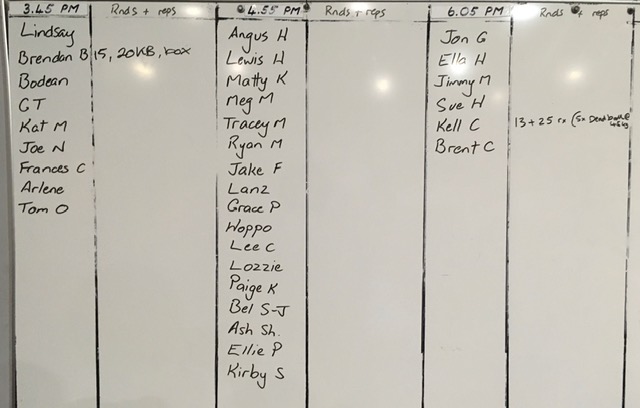 3.45 PM Rnds + reps
Lindsay
Brendan B 15, 20KB, box
Bodean
CT
Kat M
Joe N
Frances C
Arlene
Tom O
4.55 PM Rnds + reps
Angus H
Lewis H
Matty K
Meg M
Tracey M
Ryan M
Jake F
Lanz
Grace P
Woppo
Lee C
Lozzie
Paige K
Bel S-J
Ash Sh.
Ellie P
Kirby S
6.05 PM Rnds + reps
Jon G
Ella H
Jimmy M
Sue H
Kell C 13 + 25 rx (5x Dead
Brent C